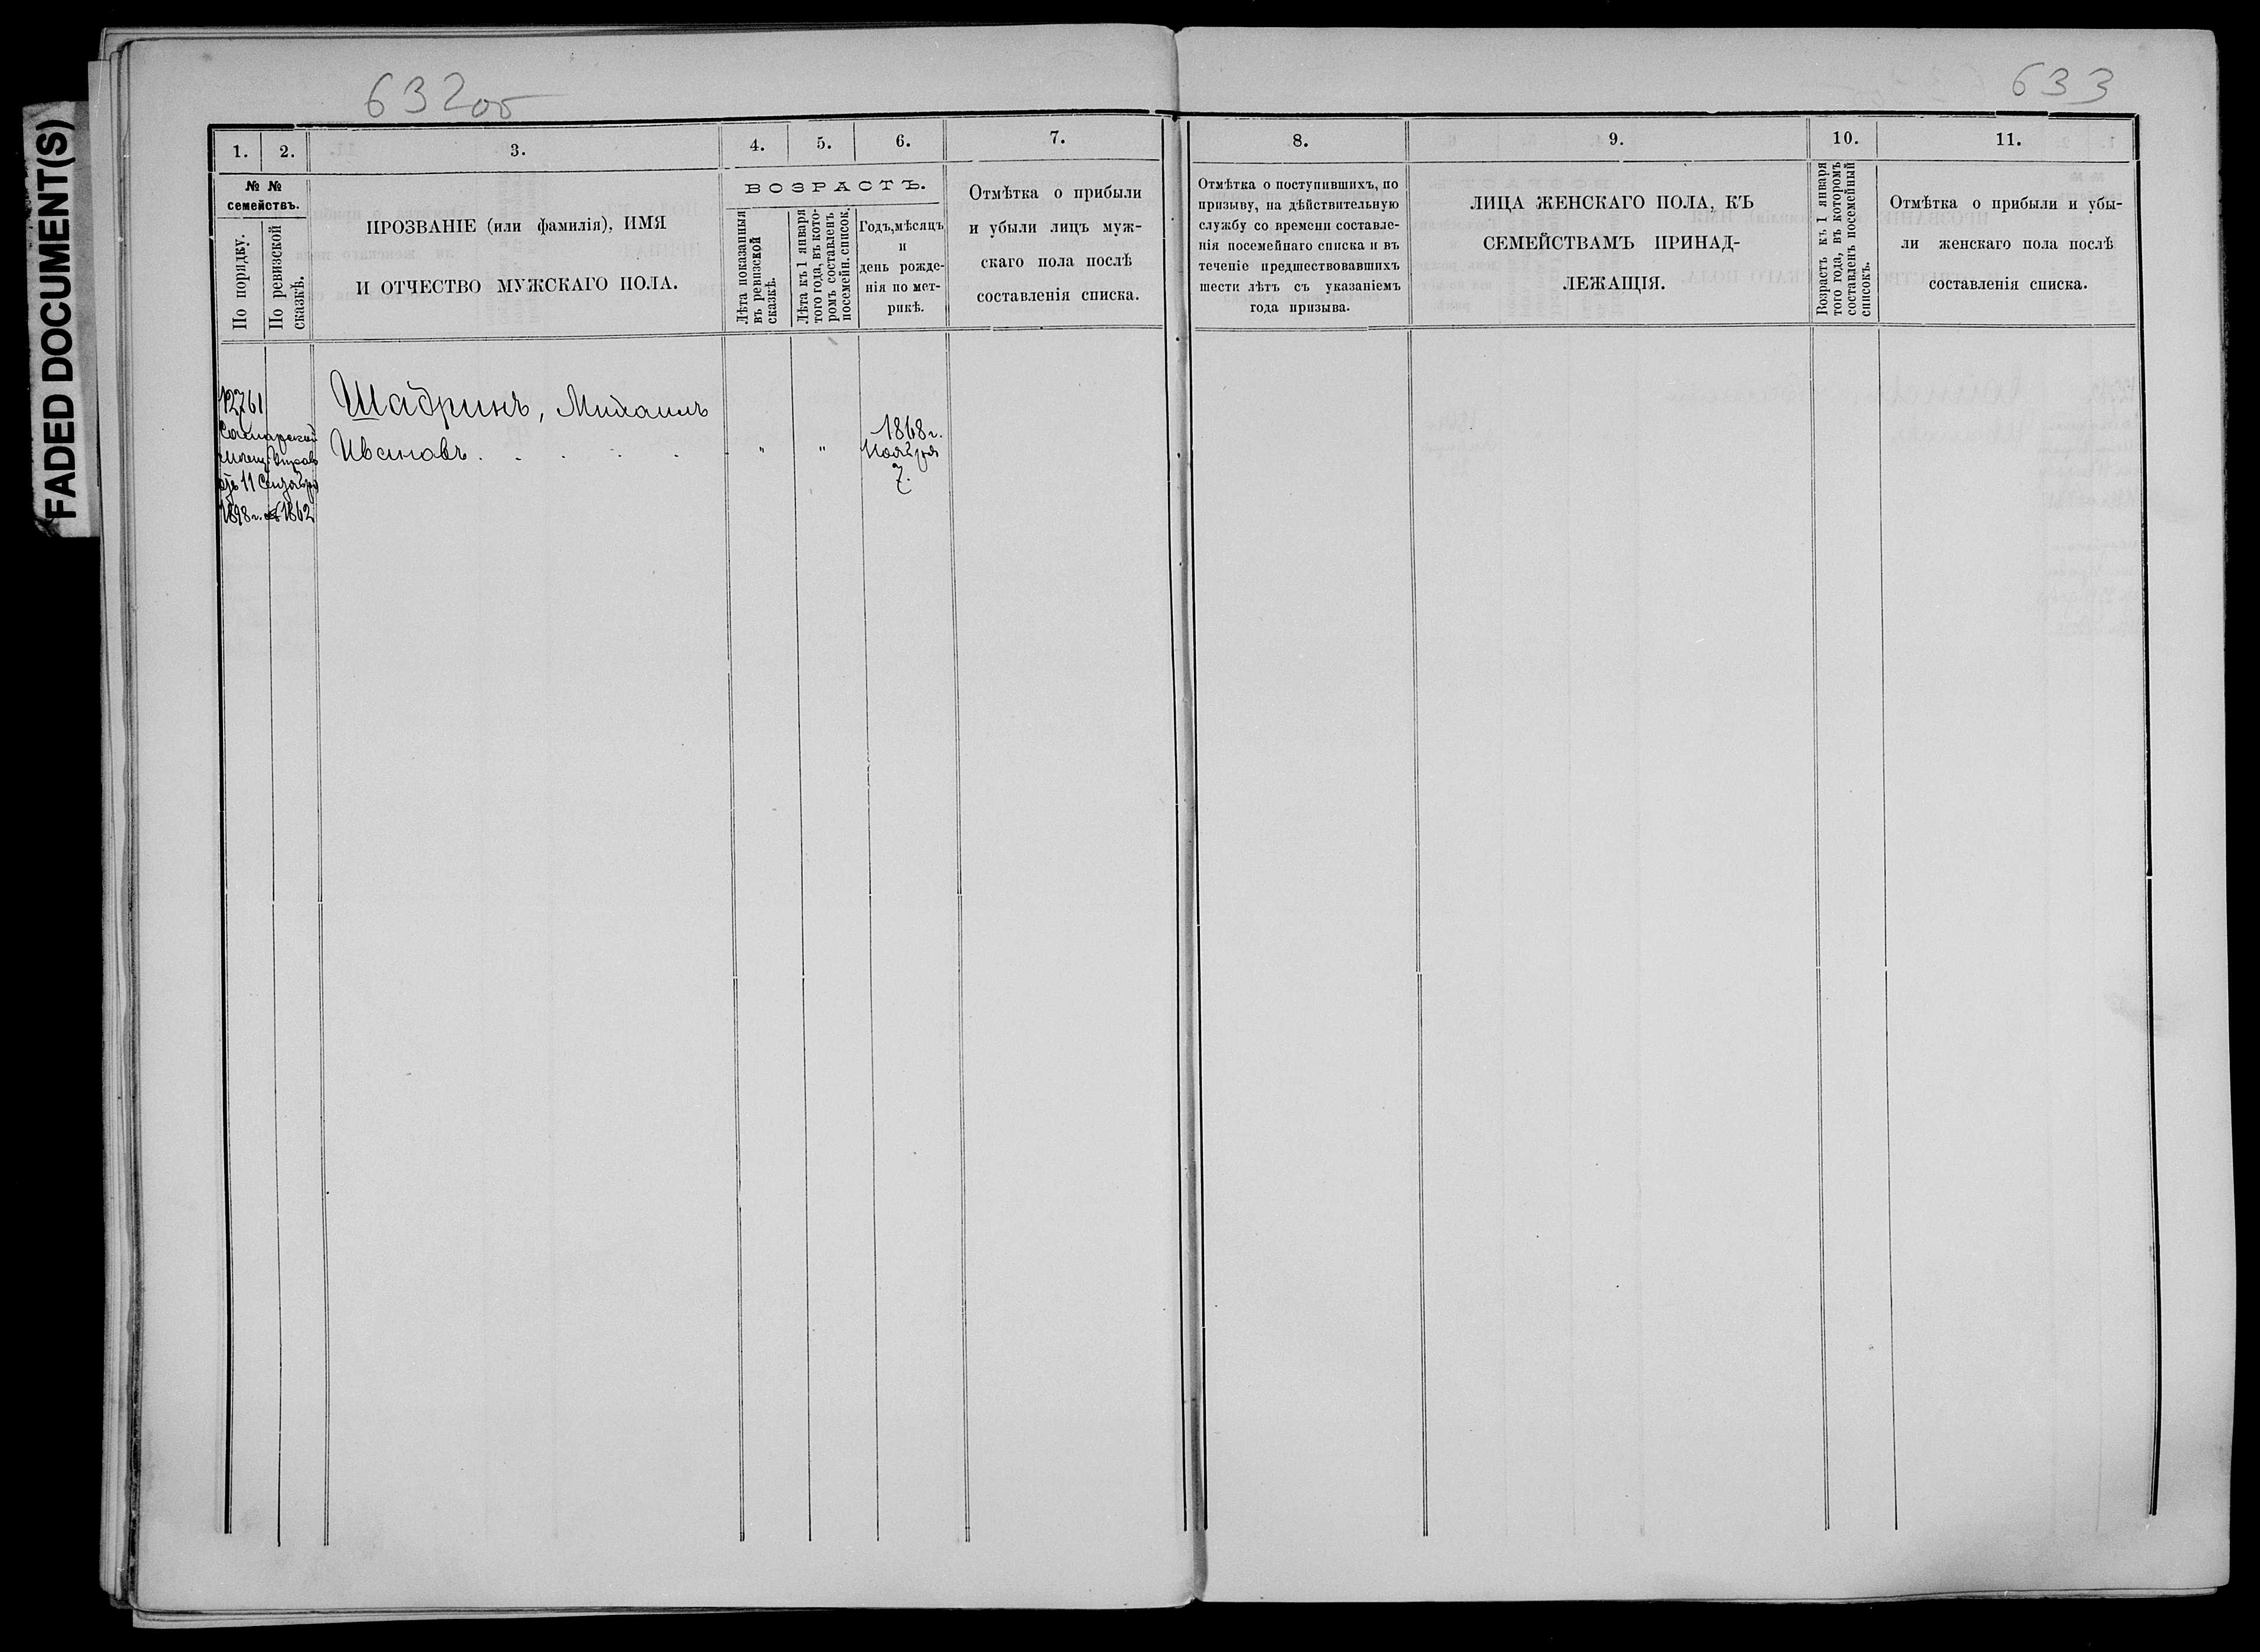 FADED DOCUMENT(S)
632об
633
1. 2. 3. 4. 5. 6. 7.
№ №
семействъ.
По порядку.
По ревизской
сказкѣ.
ПРОЗВАНІЕ (или фамилія), ИМЯ
И ОТЧЕСТВО МУЖСКАГО ПОЛА.
ВОЗРАСТЪ.
Лѣта показанныя
въ ревизской
сказкѣ.
Лѣта къ 1 января
того года, въ кото-
ромъ составленъ
посемейн. список.
Годъ, мѣсяцъ
и
день рожде-
нія по мет-
рикѣ.
Отмѣтка о прибыли
и убыли лицъ муж-
скаго пола послѣ
составленія списка.
8. 9. 10. 11.
Отмѣтка о поступившихъ, по
призыву, на дѣйствительную
службу со времени составле-
нія посемейнаго списка и въ
теченіе предшествовавшихъ
шести лѣтъ съ указаніемъ
года призыва.
ЛИЦА ЖЕНСКАГО ПОЛА, КЪ
СЕМЕЙСТВАМЪ ПРИНАД-
ЛЕЖАЩІЯ.
Возрастъ къ 1 января
того года, въ которомъ
составленъ посемейный
списокъ.
Отмѣтка о прибыли и убы-
ли женскаго пола послѣ
составленія списка.
12761
Самарской
Мѣщ. Управ
отъ 11 Сентября
1898 г. № 1862
Шадринъ, Михаилъ
Ивановъ . . . . .
" "
1868 г.
Ноября
7.